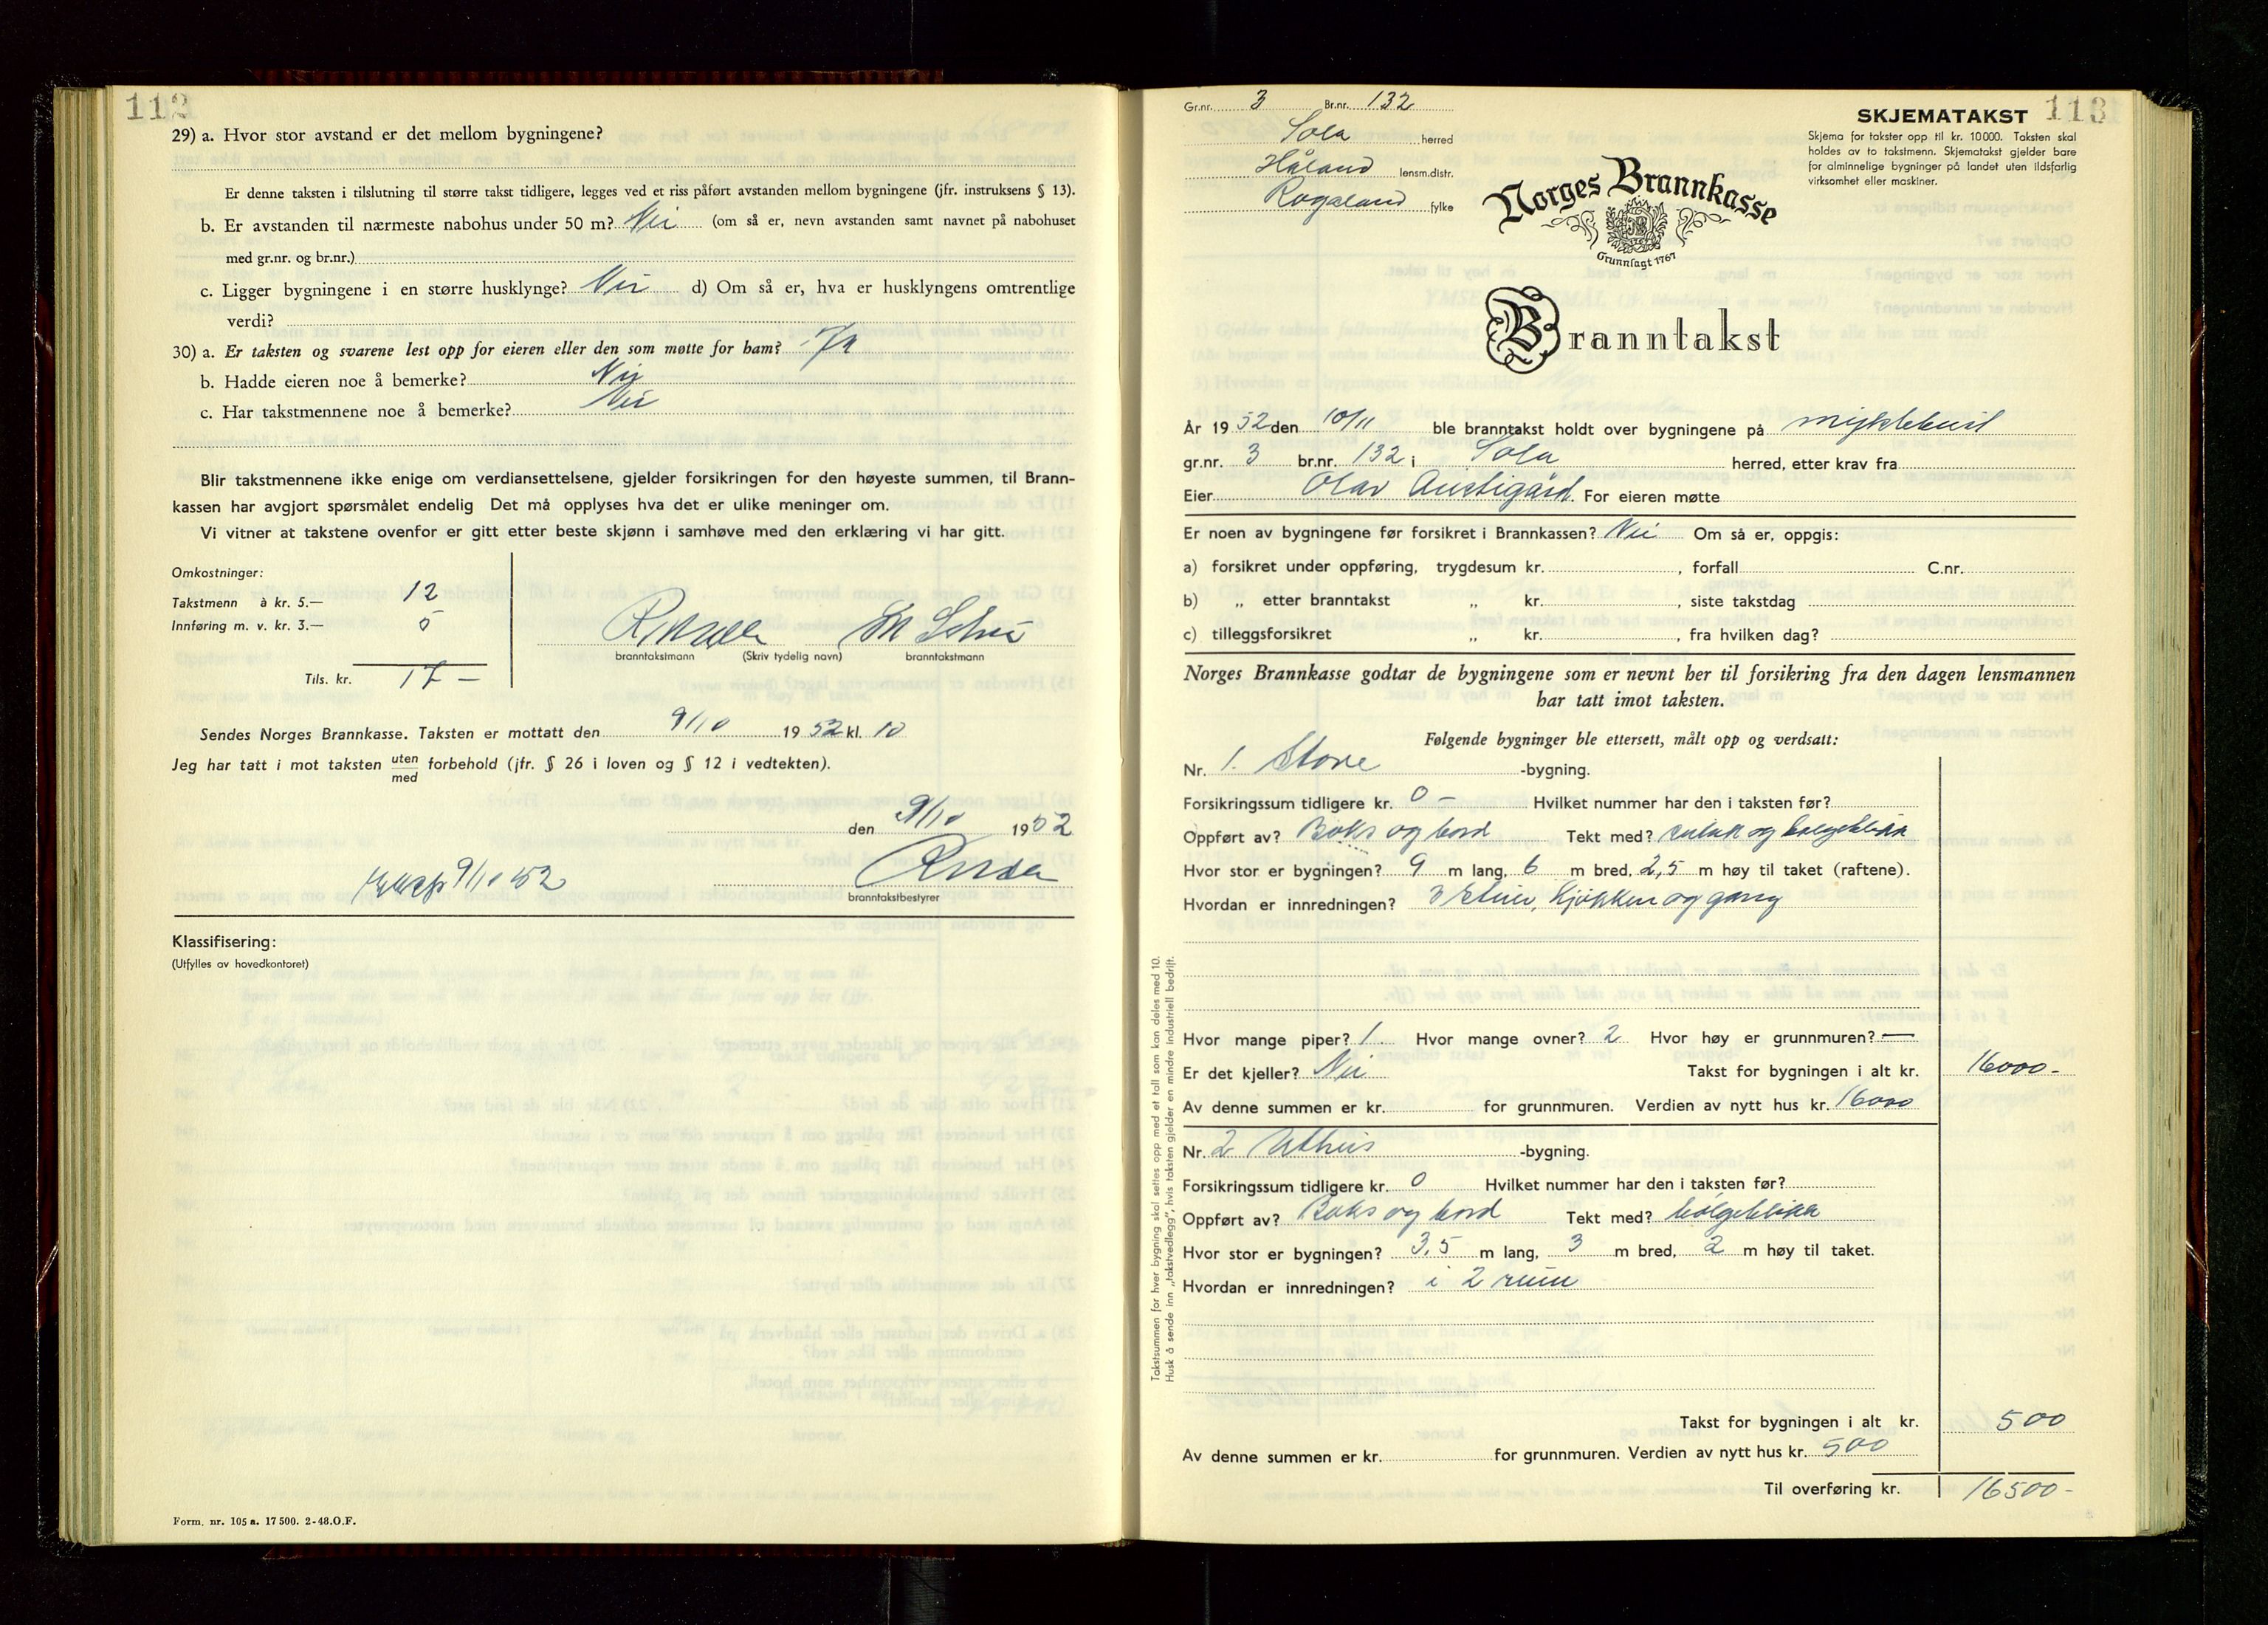 112
29) a. Hvor stor avstand er det mellom bygningene?
Er denne taksten i tilslutning til større takst tidligere, legges ved et riss påført avstanden mellom bygningene (jfr. instruksens § 13).
b. Er avstanden til nærmeste nabohus under 50 m? Nei (om så er, nevn avstanden samt navnet på nabohuset
med gr.nr. og br.nr.)
c. Ligger bygningene i en større husklynge? Nei d) Om så er, hva er husklyngens omtrentlige
verdi?
30) a. Er taksten og svarene lest opp for eieren eller den som møtte for ham? Ja
b. Hadde eieren noe å bemerke? Nei
c. Har takstmennene noe å bemerke? Nei
Blir takstmennene ikke enige om verdiansettelsene, gjelder forsikringen for den høyeste summen, til Brann-
kassen har avgjort spørsmålet endelig Det må opplyses hva det er ulike meninger om.
Vi vitner at takstene ovenfor er gitt etter beste skjønn i samhøve med den erklæring vi har gitt.
Omkostninger:
Takstmenn à kr. 5.— 12
Innføring m. v. kr. 3.— 5
branntakstmann (Skriv tydelig navn) branntakstmann
Tils. kr. 17 —
Sendes Norges Brannkasse. Taksten er mottatt den 9/10 1952 kl. 10
Jeg har tatt i mot taksten uten
med forbehold (jfr. § 26 i loven og § 12 i vedtekten).
den 9/10 1952
9/10 52
branntakstbestyrer
Klassifisering:
(Utfylles av hovedkontoret)
Form. nr. 105 a. 17 500. 2-48.O.F.
Gr.nr. 3 Br.nr. 132
SKJEMATAKST 113
Sola herred
Håland lensm.distr.
Rogaland fylke
Skjema for takster opp til kr. 10 000. Taksten skal
holdes av to takstmenn. Skjematakst gjelder bare
for alminnelige bygninger på landet uten ildsfarlig
virksomhet eller maskiner.
Norges Brannkasse
Grunnlagt 1767
Branntakst
År 1952 den 10/11 ble branntakst holdt over bygningene på Myklebust
gr.nr. 3 br.nr. 132 i Sola herred, etter krav fra
Eier Olav Austigård. For eieren møtte
Er noen av bygningene før forsikret i Brannkassen? Nei Om så er, oppgis:
a) forsikret under oppføring, trygdesum kr. , forfall C.nr.
b) „ etter branntakst „ kr. , siste takstdag
c) tilleggsforsikret „ kr. , fra hvilken dag?
Norges Brannkasse godtar de bygningene som er nevnt her til forsikring fra den dagen lensmannen
har tatt imot taksten.
Følgende bygninger ble ettersett, målt opp og verdsatt:
Nr. 1. Stove -bygning.
Forsikringssum tidligere kr. 0 — Hvilket nummer har den i taksten før?
Oppført av? Boks og bord Tekt med? og bølgeblikk
Hvor stor er bygningen? 9 m lang, 6 m bred, 2,5 m høy til taket (raftene).
Hvordan er innredningen? 3 stuer, kjøkken og gang
Hvor mange piper? 1 Hvor mange ovner? 2 Hvor høy er grunnmuren? —
Er det kjeller? Nei Takst for bygningen i alt kr. 16000-
Av denne summen er kr. for grunnmuren. Verdien av nytt hus kr. 16000
Nr. 2 Uthus -bygning.
Forsikringssum tidligere kr. 0 Hvilket nummer har den i taksten før?
Oppført av? Boks og bord Tekt med? bølgeblikk
Hvor stor er bygningen? 3,5 m lang, 3 m bred, 2 m høy til taket.
Hvordan er innredningen? i 2 rum
Takst for bygningen i alt kr. 500
Av denne summen er kr. for grunnmuren. Verdien av nytt hus kr. 500
Til overføring kr. 16500-
Takstsummen for hver bygning skal settes opp med et tall som kan deles med 10.
Husk å sende inn „takstvedlegg”, hvis taksten gjelder en mindre industriell bedrift.